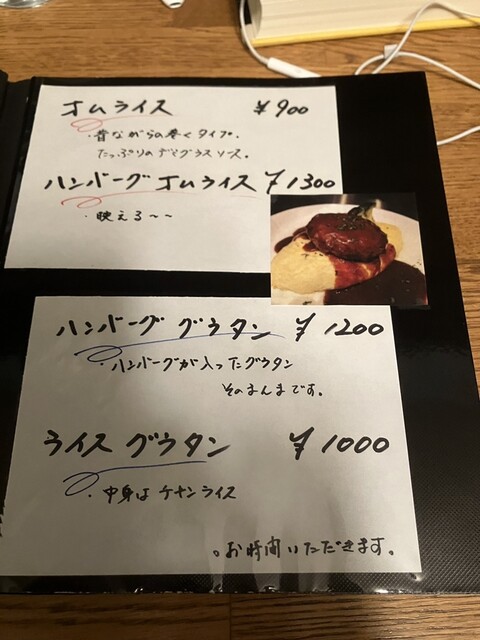 オムライス ¥900
・昔ながらの巻くタイプ。
たっぷりのデミグラスソース。
ハンバーグオムライス ¥1300
・映える〜〜
ハンバーグ グラタン ¥1200
・ハンバーグが入ったグラタン
そのまんまです。
ライスグラタン ¥1000
・中身はチキンライス
。お時間いただきます。